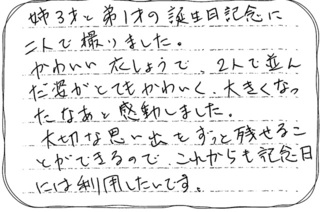 姉3才と弟1才の誕生日記念に
二人で撮りました。
かわいい衣しょうで、2人で並ん
だ姿がとてもかわいく、大きくなっ
たなあと感動しました。
大切な思い出をずっと残せるこ
とができるので、これからも記念日
には利用したいです。